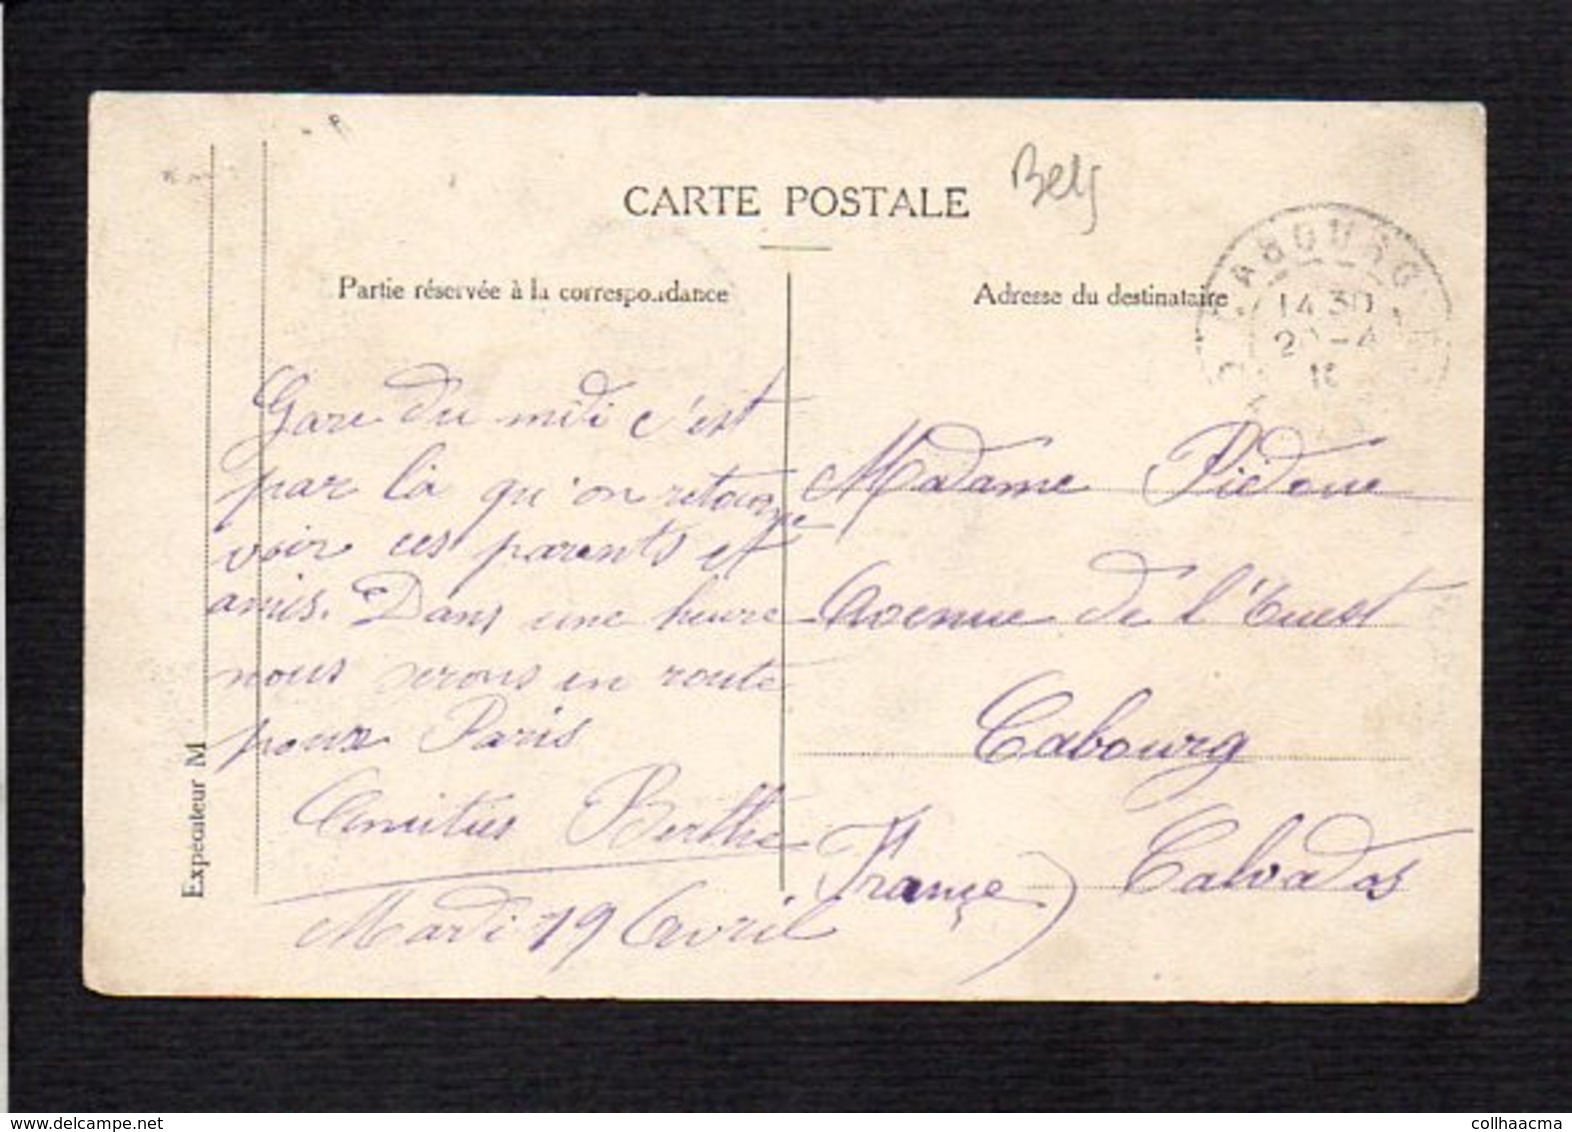 CARTE POSTALE
Belg
Partie réservée à la correspondance
Adresse du destinataire
CABOURG
14 30
20-4
10
Gare du midi c'est
par là qu'on retourne
voir ces parents et
amis. Dans une heure
nous serons en route
pour Paris
Amitiés Berthe
Mardi 19 Avril
Madame Piedoue
Avenue de l'Ouest
Cabourg
Calvados
France)
Expéditeur M
collhaacma